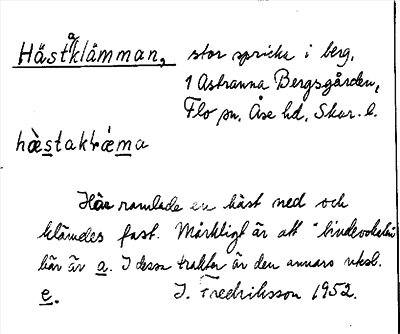 Hästaklämman, stor spricka i berg,
1 Astranna Bergsgården,
Flo sn, Åse hd, Skar. l.
hæ̀stakɫǽma
Här ramlade en häst ned och
klämdes fast. Märkligt är att "bindevokalen"
här är a. I dessa trakter är den annars vksl.
e. I. Fredriksson 1952.